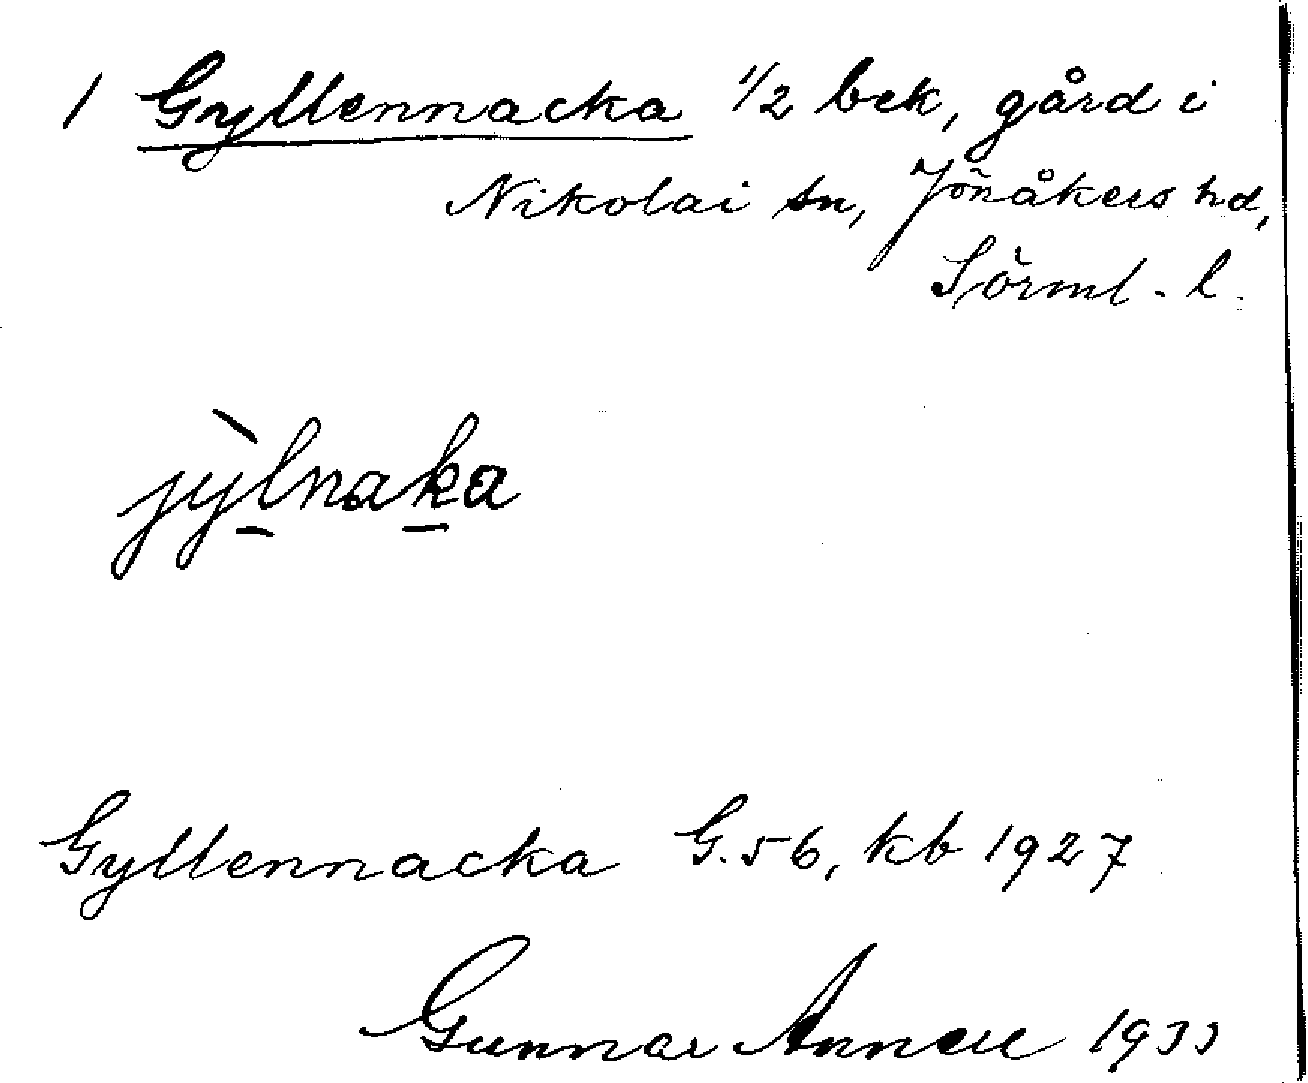 1 Gyllennacka 1/2 bek, gård i
Nikolai sn, Jönåkers hd,
Sörml. l.
jỳlnaka
Gyllennacka G.56, kb 1927
Gunnar Annell 1933